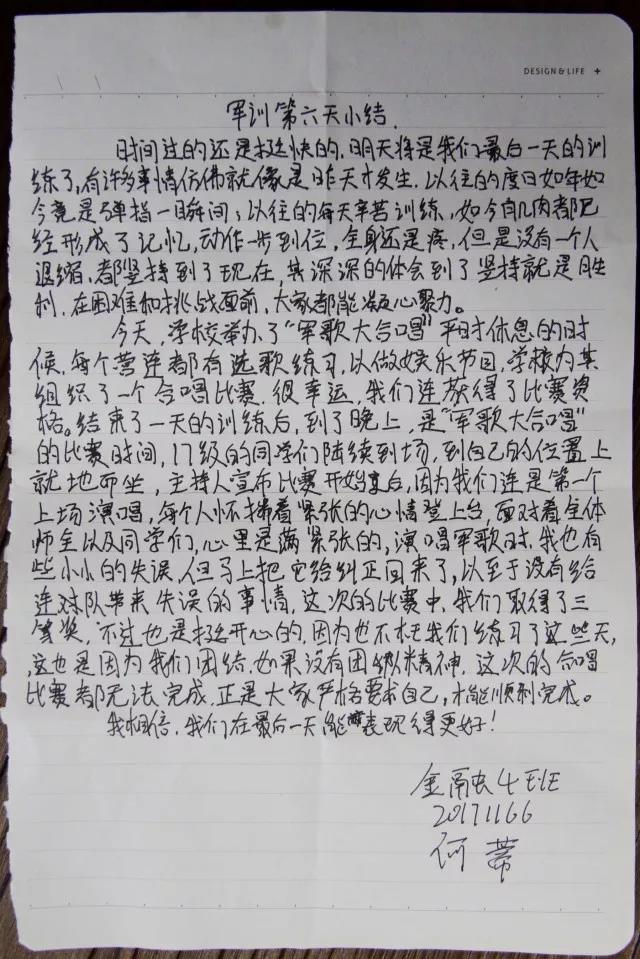 DESIGN & LIFE +
军训第六天小结.
时间过的还是挺快的.明天将是我们最后一天的训
练了,有许多事情仿佛就像是昨天才发生.以往的度日如年如
今竟是弹指一瞬间;以往的每天辛苦训练,如今肌肉都已
经形成了记忆,动作一步到位,全身还是疼,但是没有一个人
退缩.都坚持到了现在,真深深的体会到了坚持就是胜
利.在困难和挑战面前,大家都能凝心聚力。
今天,学校举办了"军歌大合唱"平时休息的时
候,每个营连都有选歌练习,以做娱乐节目,学校为其
组织了一个合唱比赛.很幸运,我们连获得了比赛资
格。结束了一天的训练后,到了晚上,是"军歌大合唱"
的比赛时间,17级的同学们陆续到场,到自己的位置上
就地而坐,主持人宣布比赛开始后,因为我们连是第一个
上场演唱,每个人怀揣着紧张的心情登上台,面对着全体
师生以及同学们,心里是满紧张的,演唱军歌时.我也有
些小小的失误.但马上把它给纠正回来了,以至于没有给
连对队带来失误的事情.这次的比赛中.我们取得了三
等奖,不过也是挺开心的.因为也不枉我们练习了这些天,
这也是因为我们团结.如果没有团队精神.这次的合唱
比赛都无法完成.正是大家严格要求自己,才能顺利完成。
我相信,我们在最后一天能表现得更好!
金融4班
20171166
何蒂